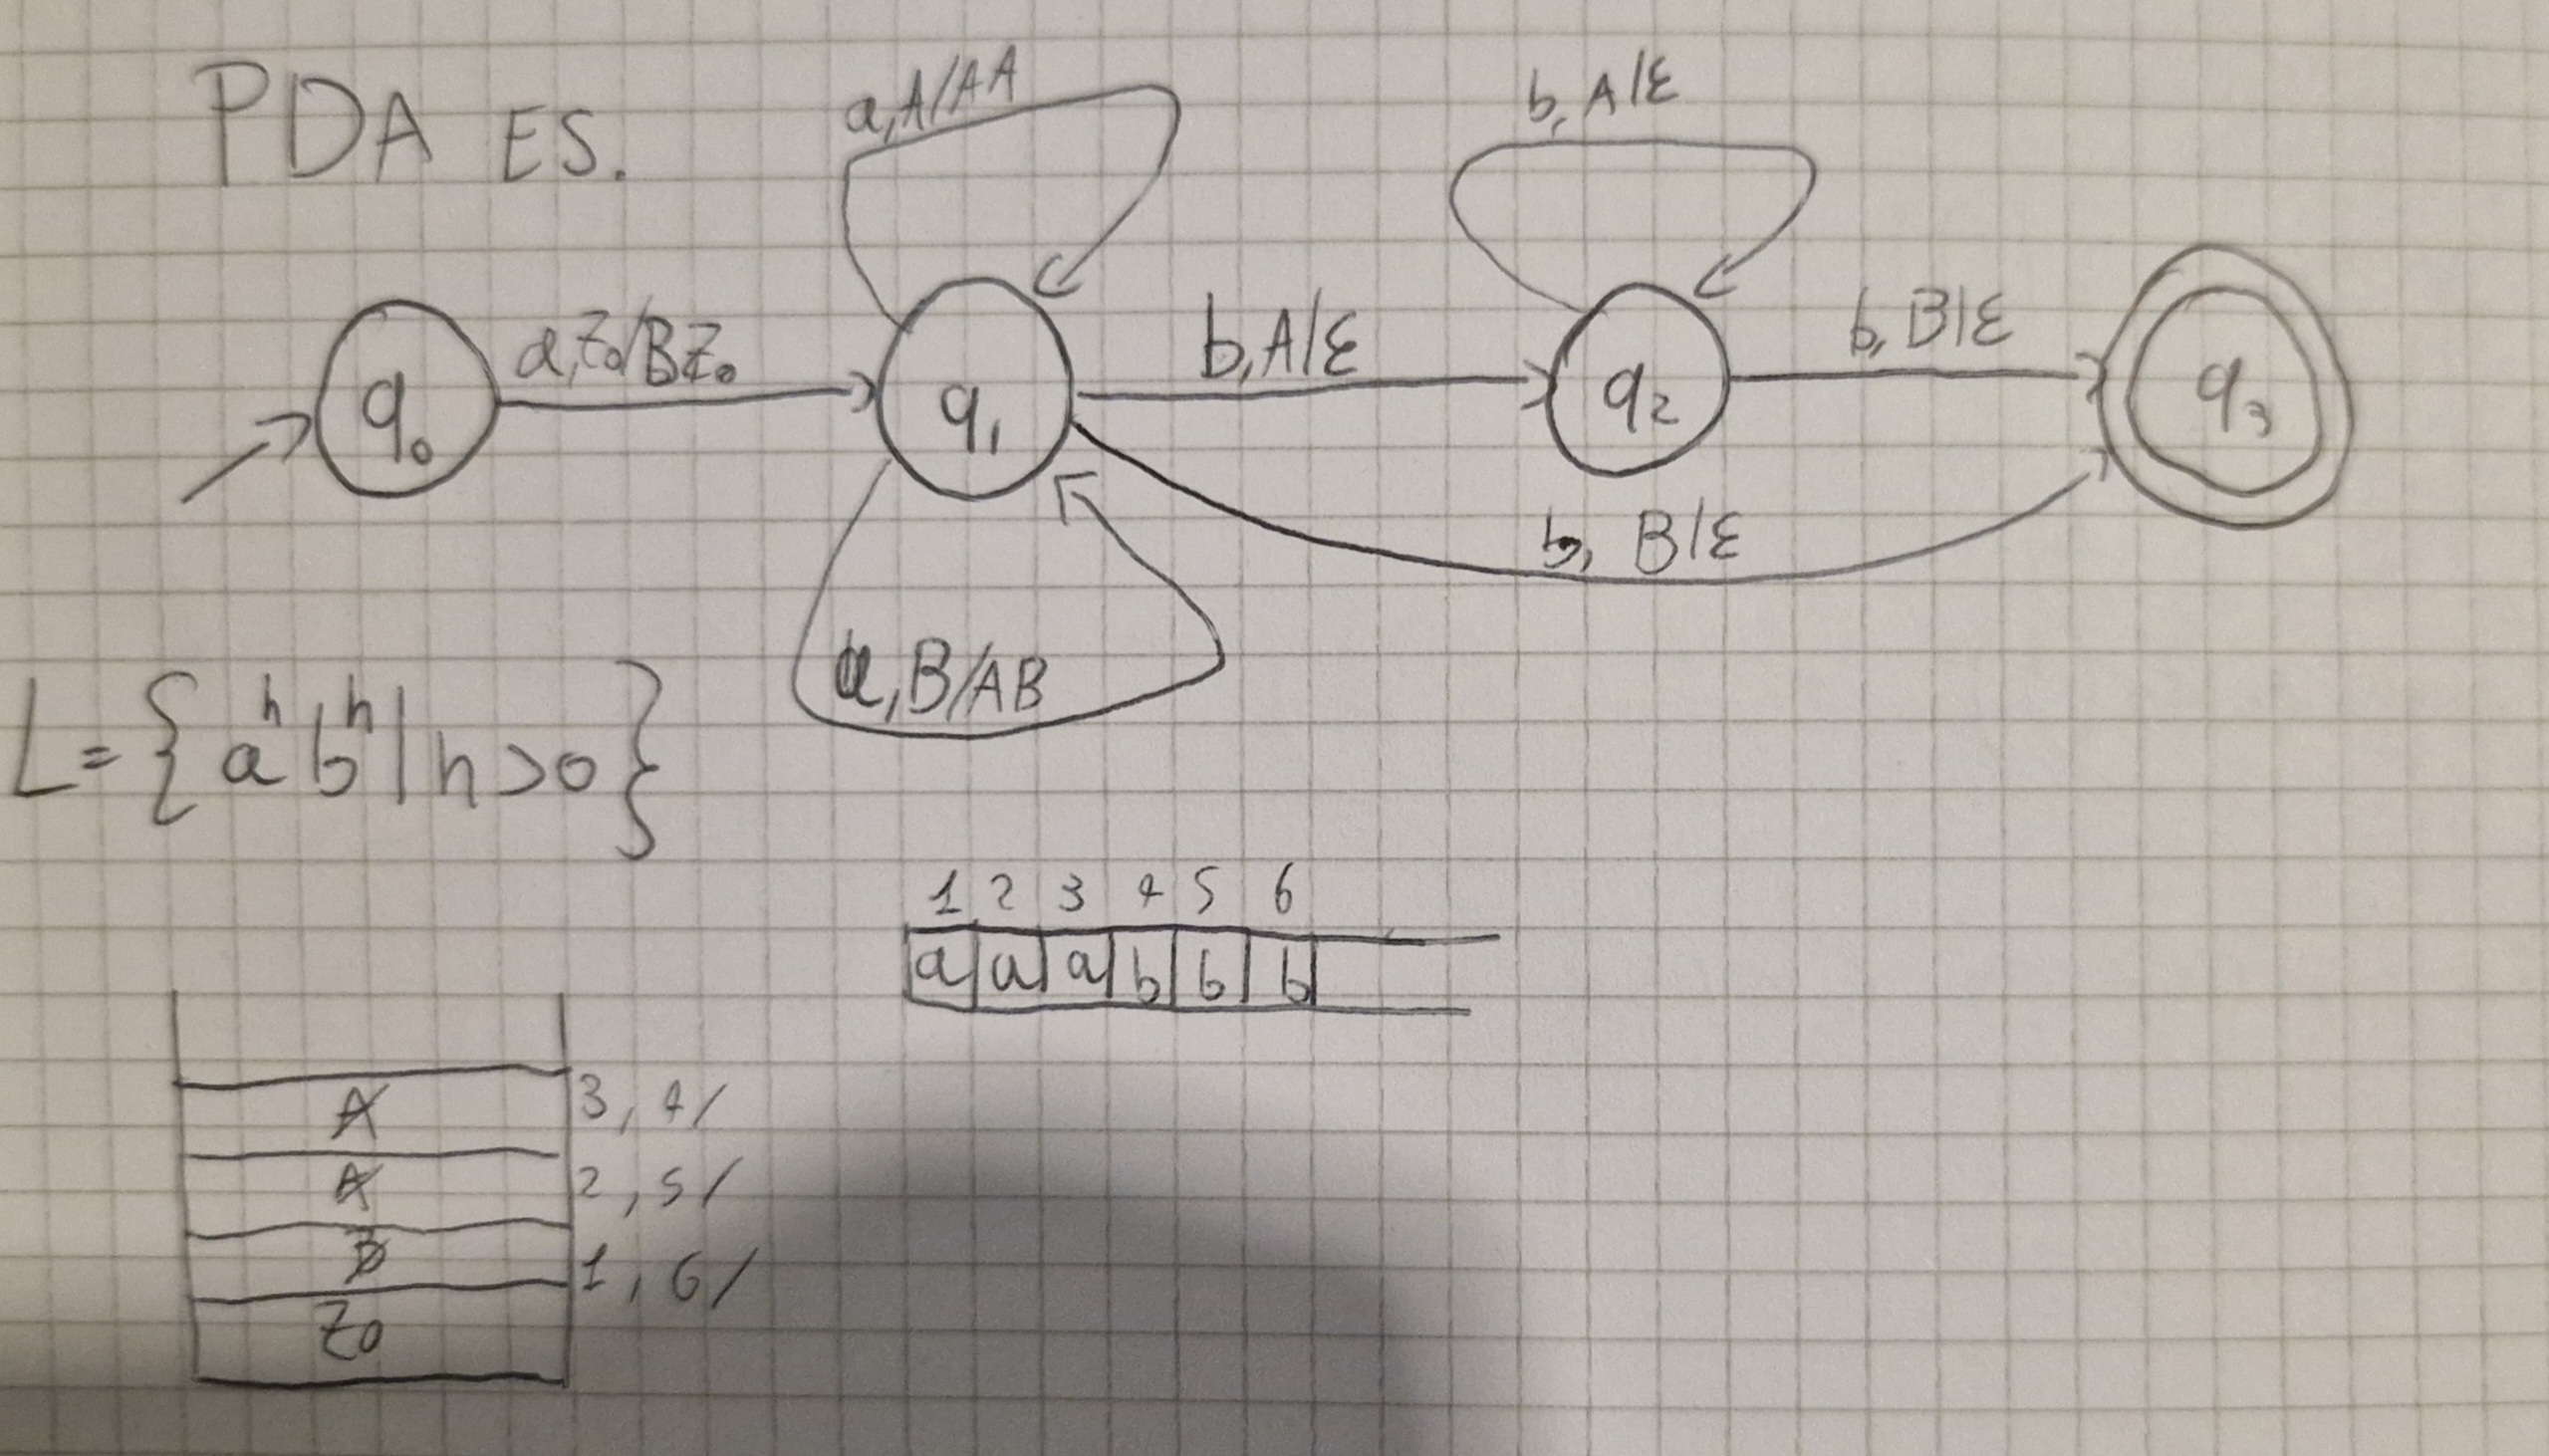 PDA ES.
a,A/AA
b,A/ε
q₀
a,Z₀/BZ₀
q₁
b,A/ε
q₂
b,B/ε
q₃
b, B/ε
a,B/AB
L={aⁿbⁿ|n>0}
1 2 3 4 5 6
a a a b b b
A 3, 4/
A 2, 5/
B 1, 6/
Z₀